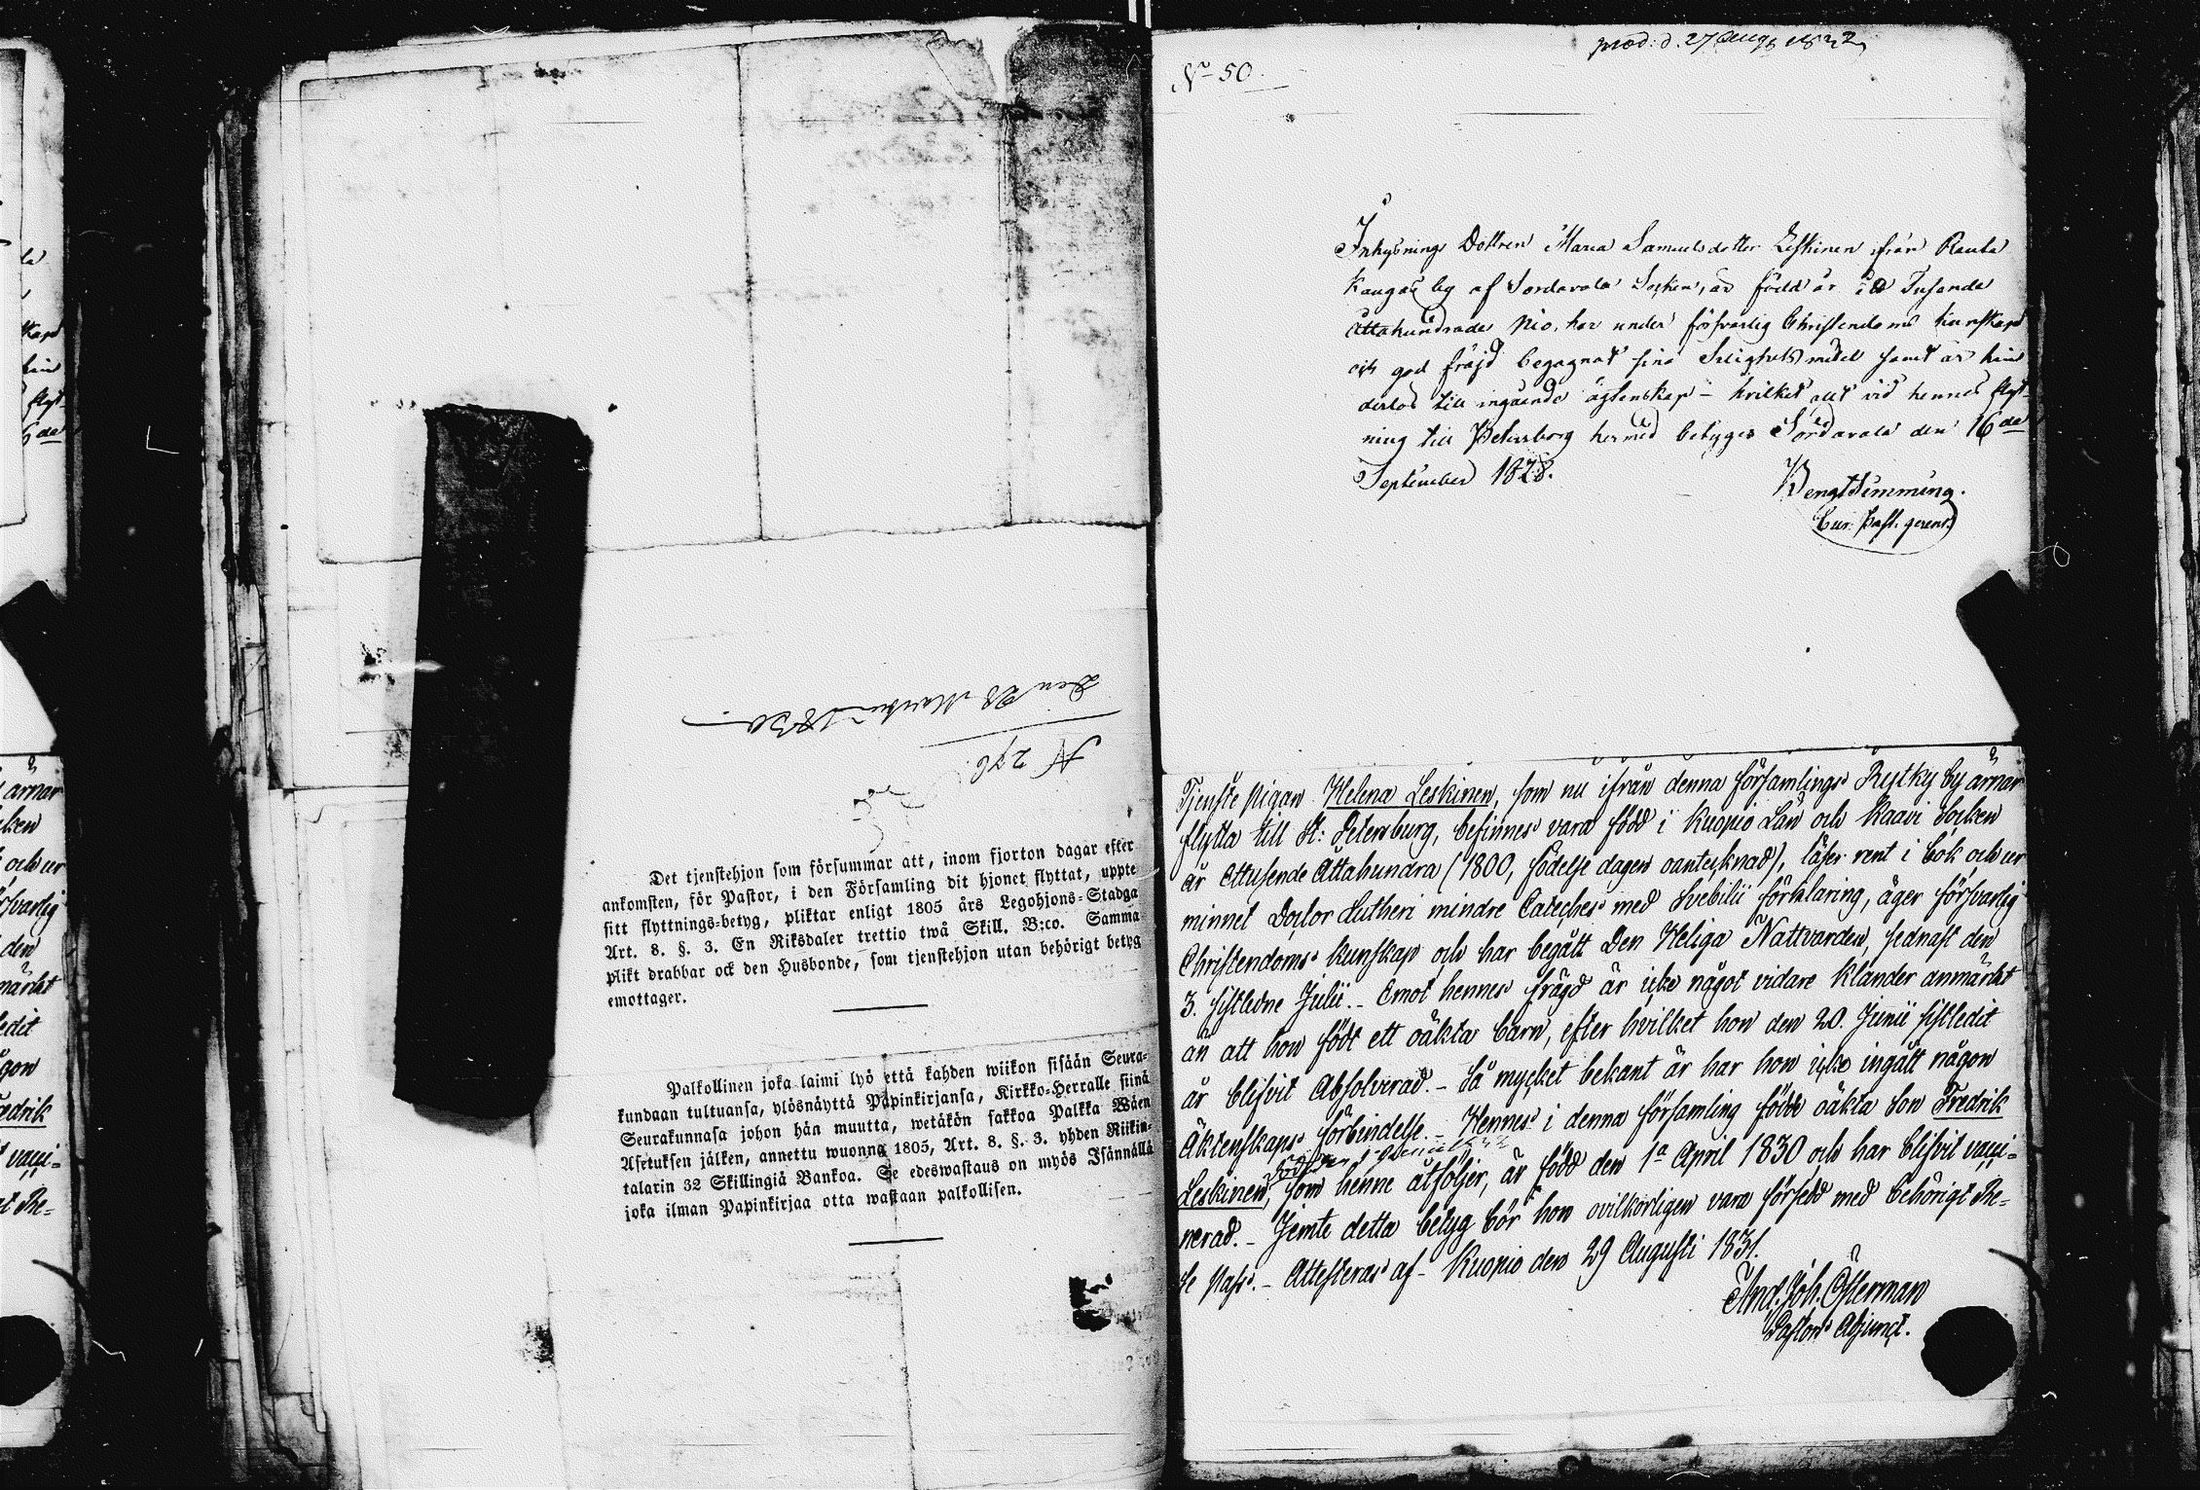 Den 28 Martii 1830.
N 276.
Det tjenstehjon som försummar att, inom fjorton dagar efter
ankomsten, för Pastor, i den Församling dit hjonet flyttat, uppte
sitt flyttnings-betyg, pliktar enligt 1805 års Legohjons-Stadga
Art. 8. §. 3. En Riksdaler trettio twå Skill. B:co. Samma
plikt drabbar ock den Husbonde, som tjenstehjon utan behörigt betyg
emottager.
Palkollinen joka laimi lyö että kahden wiikon sisään Seura-
kundaan tultuansa, ylösnäyttä Papinkirjansa, Kirkko-Herralle siinä
Seurakunnasa johon hän muutta, wetäkön sakkoa Palkka Wäen
Asetuksen jälken, annettu wuonna 1805, Art. 8. §. 3. yhden Riikin-
talarin 32 Skillingiä Bankoa. Se edeswastaus on myös Isännällä
joka ilman Papinkirjaa otta wastaan palkollisen.
prod. d. 27 Aug 1832
No 50.
Inhysnings Dottren Maria Samuelsdotter Leskinen från Rauta
Kangas by af Sordavala Socken, är född år Tusende
Åttahundrade nio, har under försvarlig Christendoms kunskap
och god fräjd begagnat sina Salighets medel samt är hin
derlös till ingående ägtenskap – hvilket allt vid hennes flyt-
ning till Petersborg hermed betygas Sordavala den 16de
September 1828.
Bengt Simming.
Cur. Past. gerens.
Tjenste pigan Helena Leskinen, som nu ifrån denna församlings Rytky by ärnar
flytta till St: Petersburg, befinnes vara född i Kuopio Län och Kaavi Socken
år Ettusende Åttahundra (1800, födelse dagen oantecknad), läser rent i bok, och ur
minnet Doctor Lutheri mindre Cateches med Svebilii förklaring, äger försvarlig
Christendoms kunskap och har begått Den Heliga Nattvarden, sednast den
3. sistledne Julii. – Emot hennes frägd är icke något vidare klander anmärkt
än att hon född ett oäkta barn, efter hvilket hon den 20. Junii sistledit
år blifvit Absolverad. – Så mycket bekant är har hon icke ingått någon
Äktenskaps förbindelse. – Hennes i denna församling födde oäkta Son Fredrik
Leskinen, som henne åtföljer, är född den 1a April 1830 och har blifvit vacci-
nerad. – Jemte detta betyg bör hon ovilkorligen vara försedd med behörigt Re-
se Pass. – Attesteras af – Kuopio den 29 Augusti 1831.
And. Joh. Österman
Pastors Adjunct.